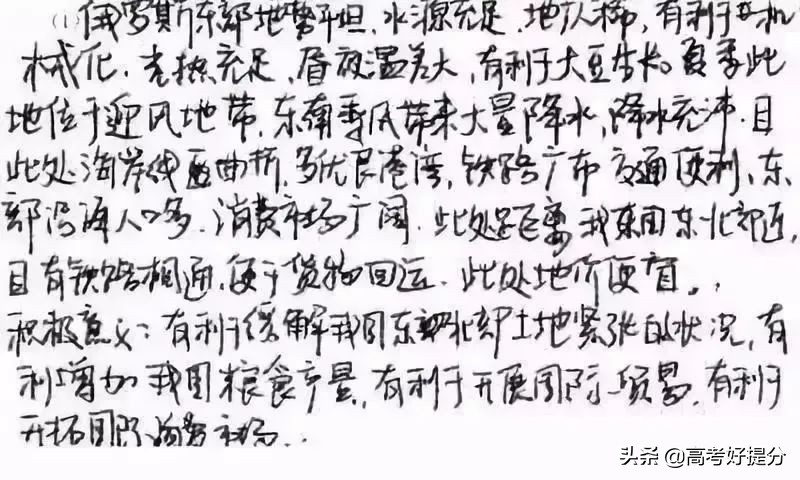 (1) 俄罗斯东部地势平坦，水源充足，地广人稀，有利于机
械化，光热充足，昼夜温差大，有利于大豆生长。夏季此
地位于迎风地带，东南季风带来大量降水，降水充沛，且
此处海岸线曲折，多优良港湾，铁路广布交通便利，东
部沿海人口多，消费市场广阔，此处距离我国东北部近，
且有铁路相通，便于货物回运，此处地价便宜。
积极意义：有利于缓解我国东北部土地紧张的状况，有
利增加我国粮食产量，有利于开展国际贸易，有利于
开拓国际消费市场..
头条 @高考好提分